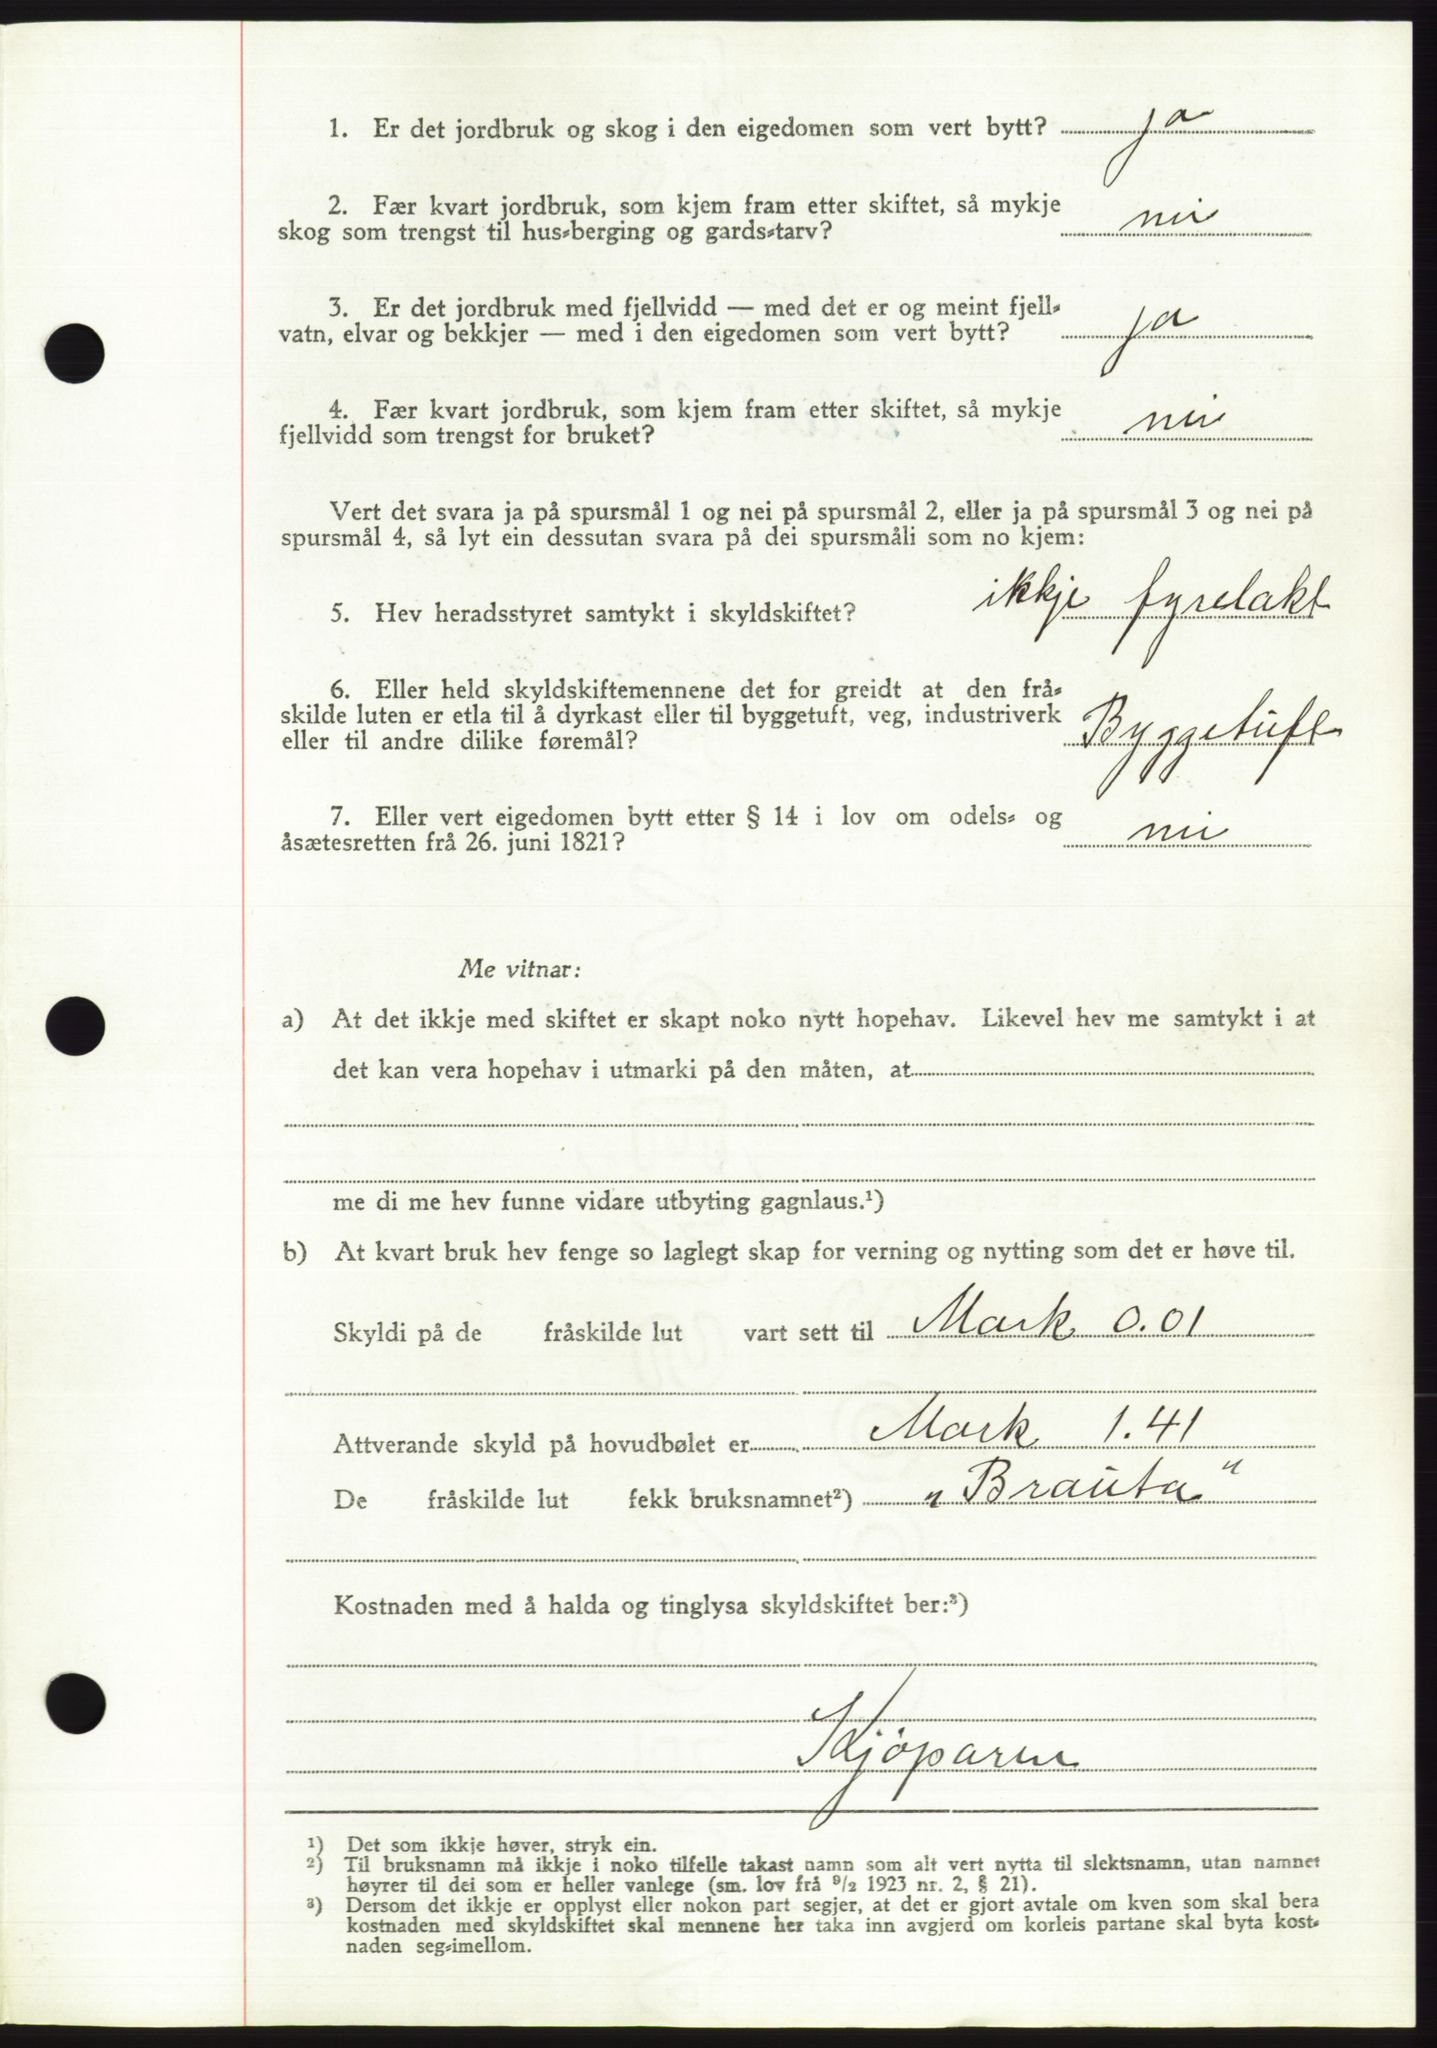 1. Er det jordbruk og skog i den eigedomen som vert bytt? ja
2. Fær kvart jordbruk, som kjem fram etter skiftet, så mykje
skog som trengst til hus-berging og gards-tarv? nei
3. Er det jordbruk med fjellvidd — med det er og meint fjell-
vatn, elvar og bekkjer — med i den eigedomen som vert bytt? ja
4. Fær kvart jordbruk, som kjem fram etter skiftet, så mykje
fjellvidd som trengst for bruket? nei
Vert det svara ja på spursmål 1 og nei på spursmål 2, eller ja på spursmål 3 og nei på
spursmål 4, så lyt ein dessutan svara på dei spursmåli som no kjem:
5. Hev heradsstyret samtykt i skyldskiftet? ikkje fyrelakt
6. Eller held skyldskiftemennene det for greidt at den frå-
skilde luten er etla til å dyrkast eller til byggetuft, veg, industriverk
eller til andre dilike føremål? Byggetuft
7. Eller vert eigedomen bytt etter § 14 i lov om odels- og
åsætesretten frå 26. juni 1821? nei
Me vitnar:
a) At det ikkje med skiftet er skapt noko nytt hopehav. Likevel hev me samtykt i at
det kan vera hopehav i utmarki på den måten, at
me di me hev funne vidare utbyting gagnlaus.¹)
b) At kvart bruk hev fenge so laglegt skap for verning og nytting som det er høve til.
Skyldi på de fråskilde lut vart sett til Mark 0.01
Attverande skyld på hovudbølet er Mark 1.41
De fråskilde lut fekk bruksnamnet²) „Brauta"
Kostnaden med å halda og tinglysa skyldskiftet ber:³)
Kjøparen
¹) Det som ikkje høver, stryk ein.
²) Til bruksnamn må ikkje i noko tilfelle takast namn som alt vert nytta til slektsnamn, utan namnet
høyrer til dei som er heller vanlege (sm. lov frå 9/2 1923 nr. 2, § 21).
³) Dersom det ikkje er opplyst eller nokon part segjer, at det er gjort avtale om kven som skal bera
kostnaden med skyldskiftet skal mennene her taka inn avgjerd om korleis partane skal byta kost-
naden seg-imellom.